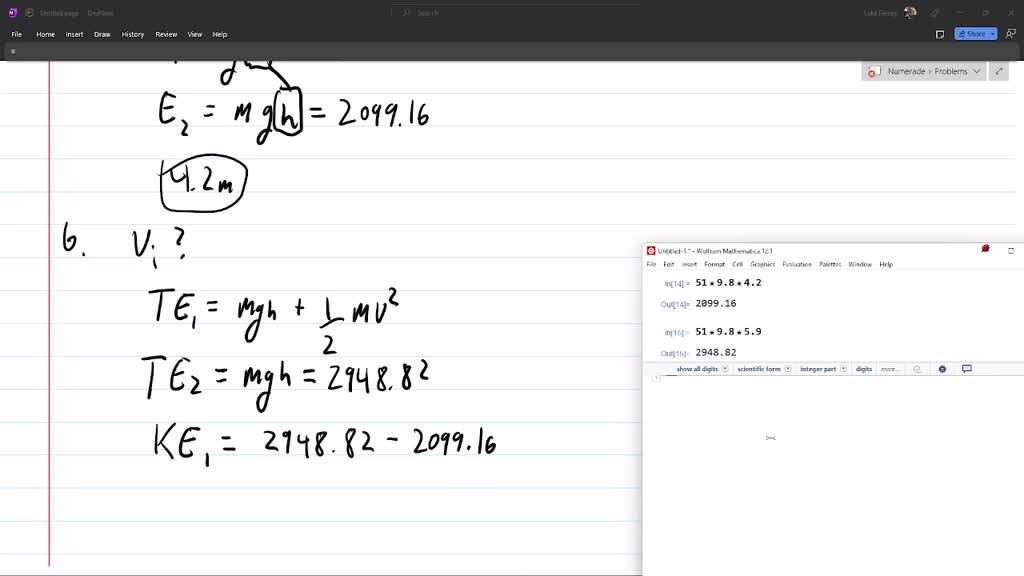 Untitled page OneNote
Search
File Home Insert Draw History Review View Help
Share
Numerade » Problems
E₂ = mgh = 2099.16
4.2m
b. Vᵢ ?
TE₁ = mgh + 1/2 mv²
TE₂ = mgh = 2948.82
KE₁ = 2948.82 - 2099.16
Untitled-1 * - Wolfram Mathematica 12.1
File Edit Insert Format Cell Graphics Evaluation Palettes Window Help
In[14]:= 51*9.8*4.2
Out[14]= 2099.16
In[15]:= 51*9.8*5.9
Out[15]= 2948.82
show all digits scientific form integer part digits more...